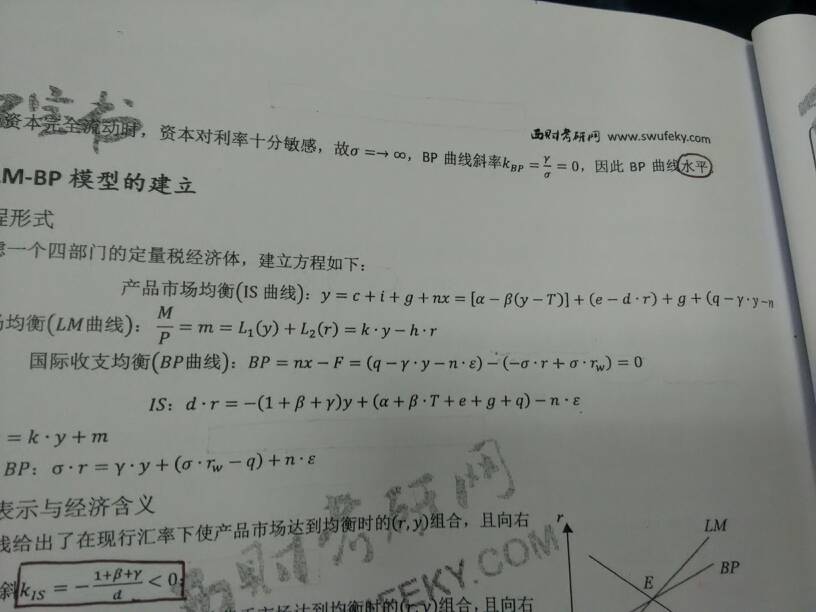 西财考研网 www.swufeky.com
资本完全流动时，资本对利率十分敏感，故σ=→∞，BP 曲线斜率k_BP=γ/σ=0，因此 BP 曲线水平
LM-BP 模型的建立
程形式
虑一个四部门的定量税经济体，建立方程如下：
产品市场均衡(IS 曲线)：y=c+i+g+nx=[α−β(y−T)]+(e−d·r)+g+(q−γ·y−n
场均衡(LM曲线)：M/P=m=L₁(y)+L₂(r)=k·y−h·r
国际收支均衡(BP曲线)：BP=nx−F=(q−γ·y−n·ε)−(−σ·r+σ·r_w)=0
IS：d·r=−(1+β+γ)y+(α+β·T+e+g+q)−n·ε
=k·y+m
BP：σ·r=γ·y+(σ·r_w−q)+n·ε
表示与经济含义
线给出了在现行汇率下使产品市场达到均衡时的(r,y)组合，且向右
斜k_IS=−(1+β+γ)/d<0;
市场达到均衡时的(r,y)组合，且向右
西财考研网
UFEKY.COM
r
LM
BP
E